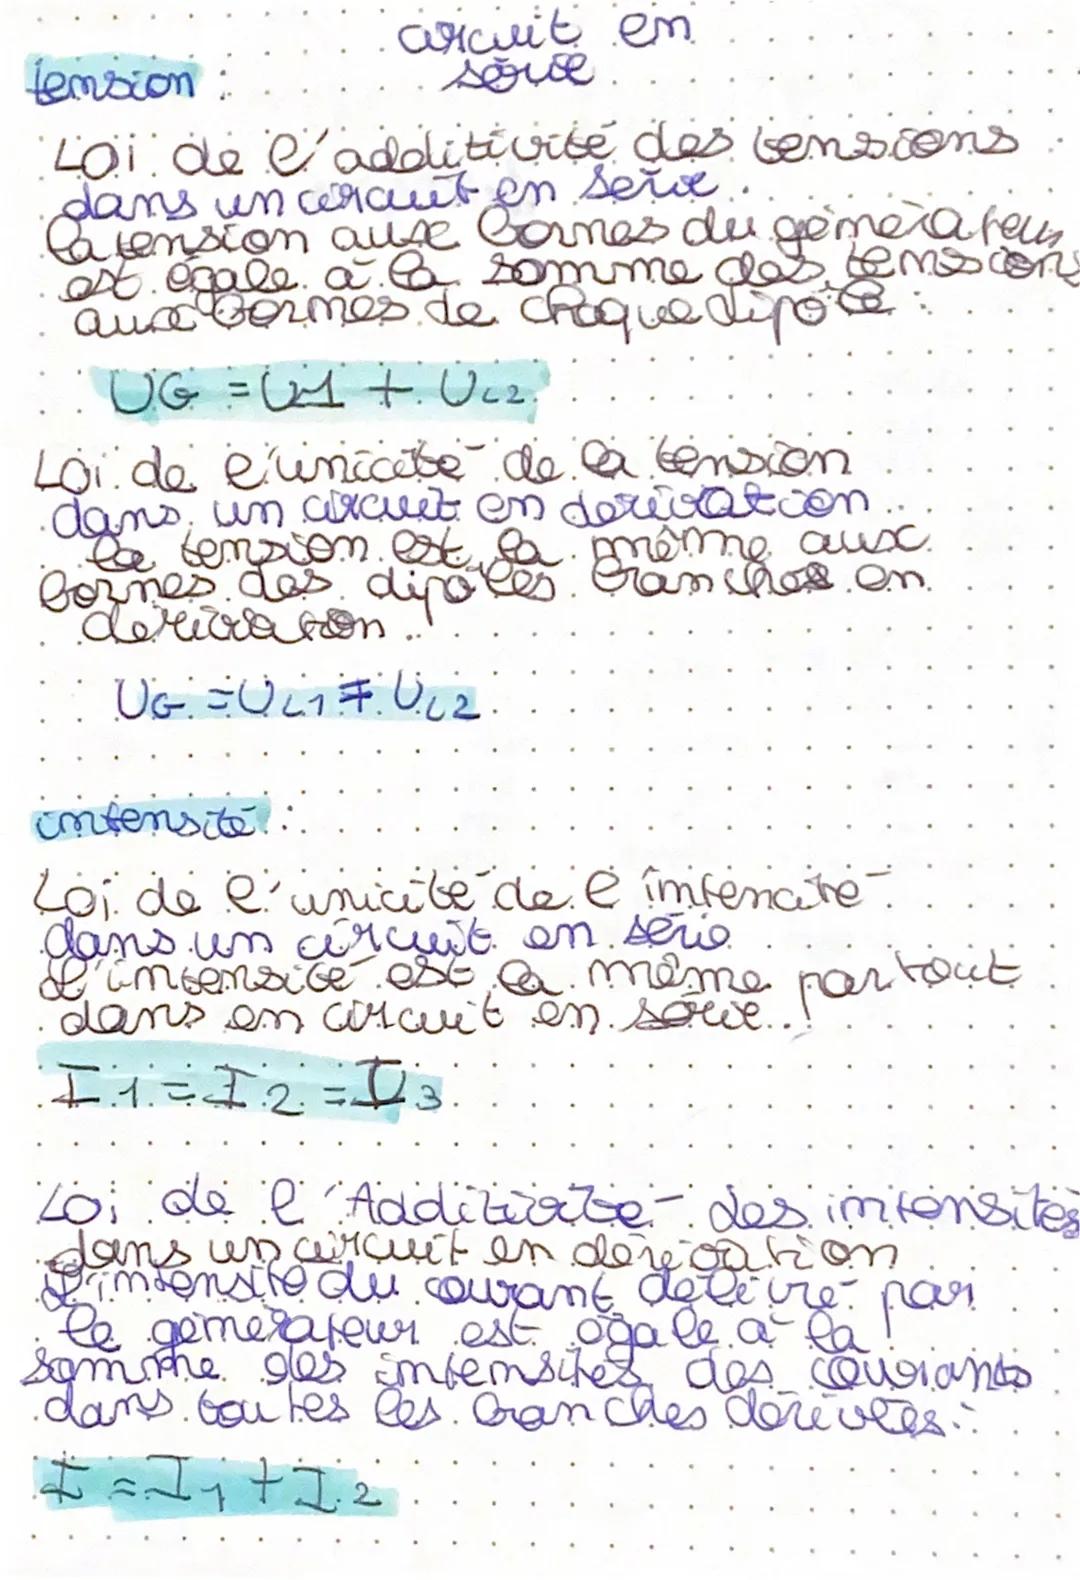 circuit en
série
tension :
Loi de l'additivité des tensions
dans un circuit en série.
la tension aux bornes du génèrateur
est égale à la somme des tensions
aux bornes de chaque dipôle :
UG = U1 + UL2
Loi de l'unicité de la tension
dans un circuit en derivation.
la tension est la même aux
bornes des dipôles branchés en
derivation.
UG = UL1 = UL2
intensité :
Loi de l'unicité de l'intencité
dans un circuit en série
L'intensité est la même partout
dans en circuit en série.
I1 = I2 = I3
Loi de l'Additivité des intensités
dans un circuit en dérivation
L'intensité du courant délivré par
le génerateur est égale à la
somme des intensités des courants
dans toutes les branches dérivées :
I = I1 + I2